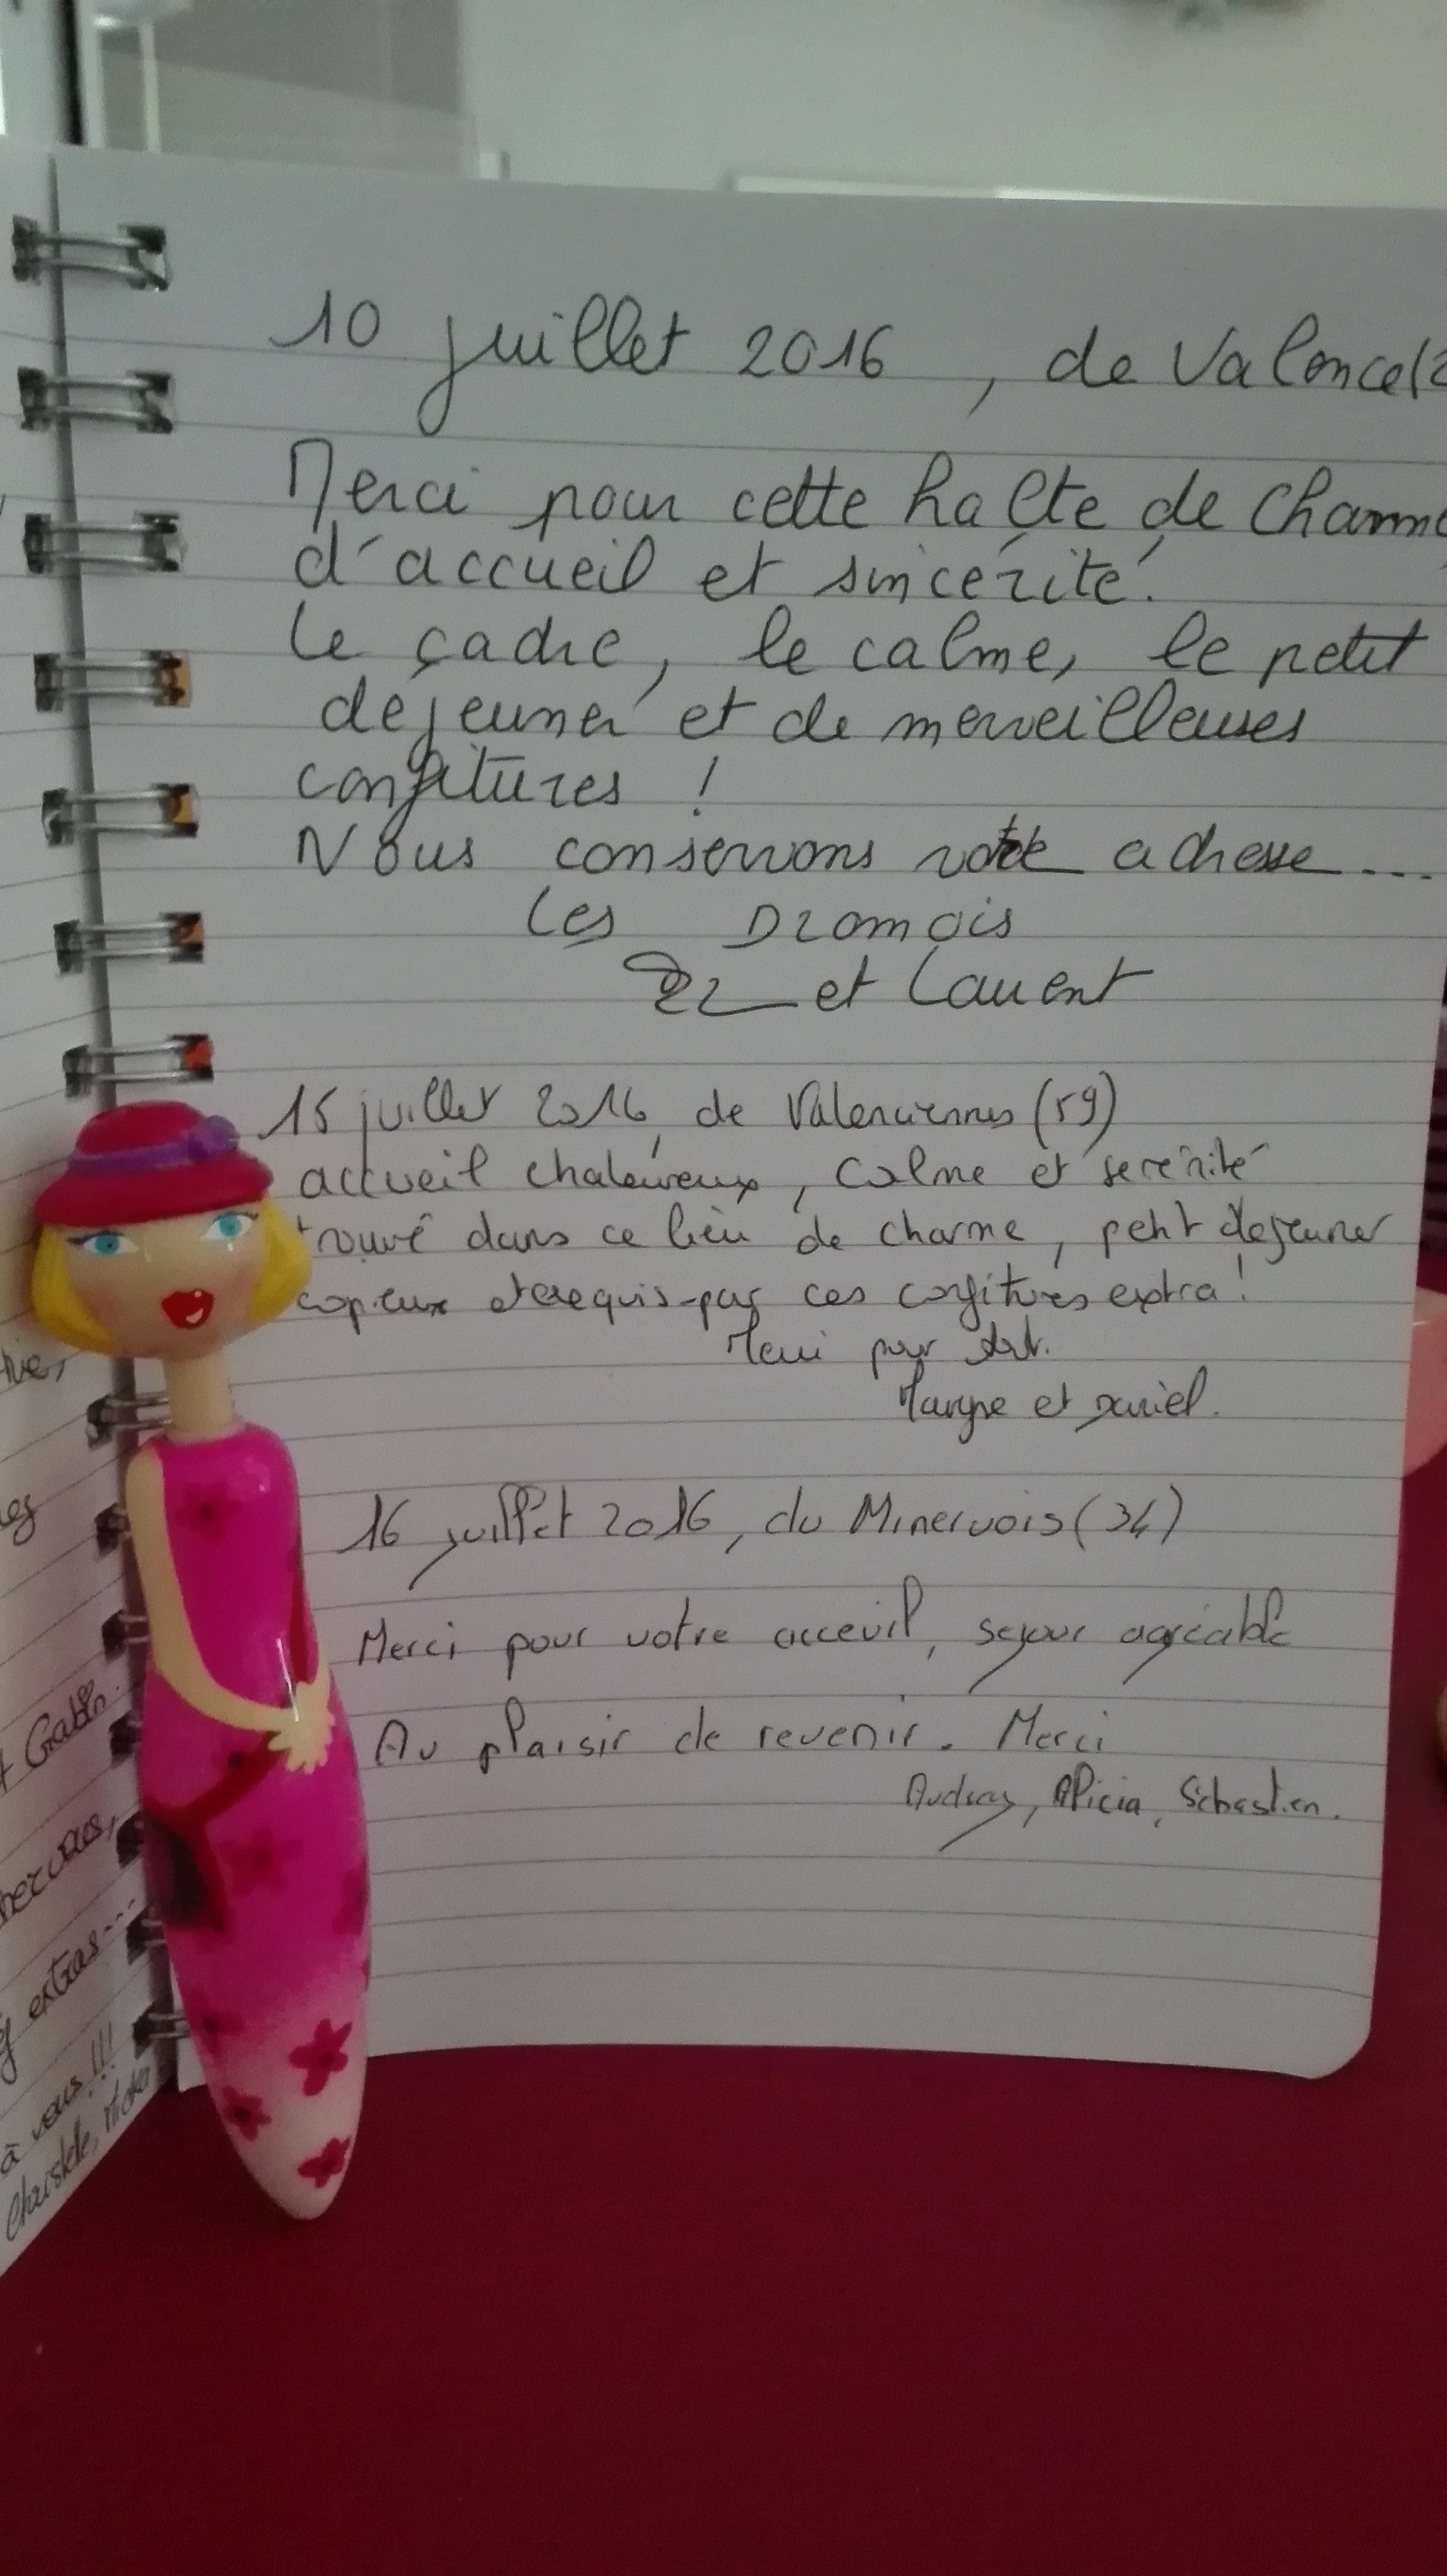 10 juillet 2016, de Valence (2
Merci pour cette halte de charme
d'accueil et sincérité.
Le cadre, le calme, le petit
déjeuner et de merveilleuses
confitures !
Nous conservons votre adresse....
Les Dromois
et Laurent
15 juillet 2016, de Valenciennes (59)
accueil chaleureux, calme et serénité
trouvé dans ce lieu de charme, petit dejeuner
copieux et exquis par ces confitures extra !
Merci pour tout.
Maryse et Daniel.
16 juillet 2016, du Minervois (34)
Merci pour votre acceuil, sejour agréable
Au plaisir de revenir. Merci
Audrey, Alicia, Sébastien.
Gabin.
extras...
à vous !!!